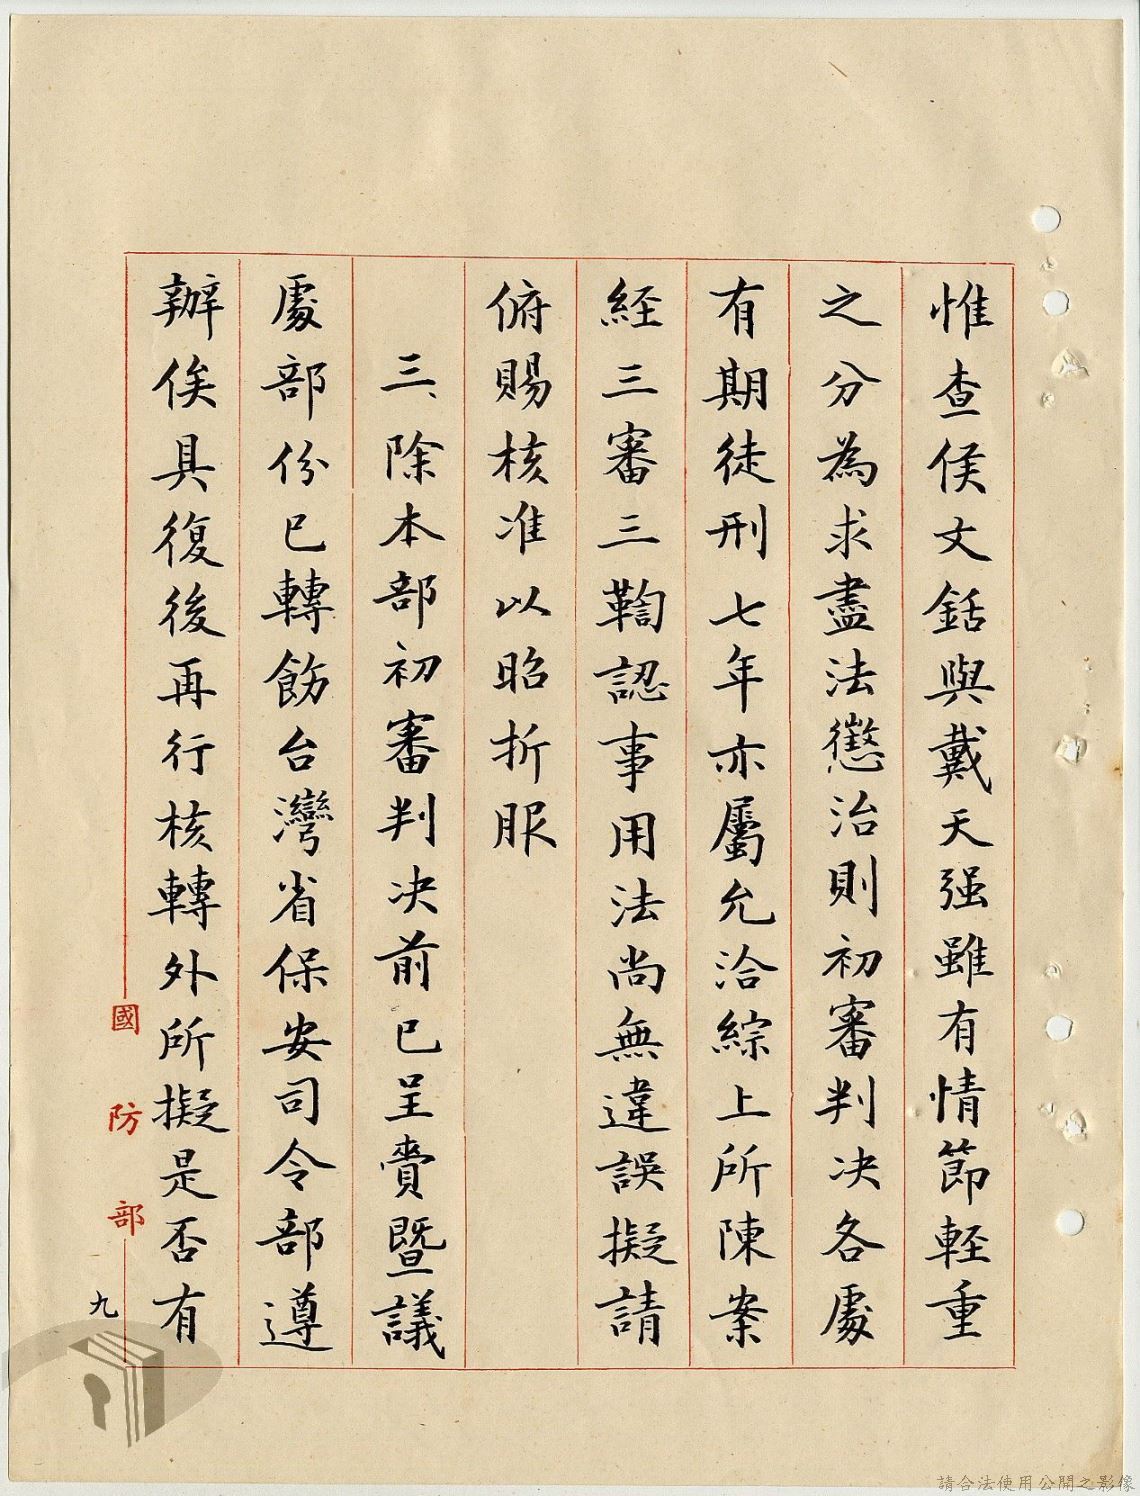 惟查侯文銛與戴天强雖有情節輕重
之分為求盡法懲治則初審判决各處
有期徒刑七年亦屬允洽綜上所陳案
経三審三鞫認事用法尚無違誤擬請
俯賜核准以昭折服
三、除本部初審判决前已呈賷暨議
處部份已轉飭台灣省保安司令部遵
辦俟具復後再行核轉外所擬是否有
國防部
九
請合法使用公開之影像